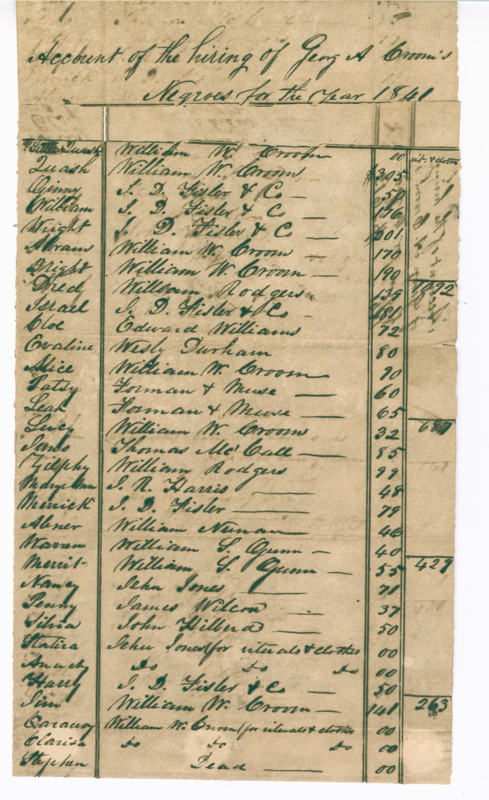 Account of the hiring of Georg A Croom's
Negroes for the Year 1841
Little Quash William W. Croom 00 vit. & cloths
Quash William W. Crooms
Ginny I. D. Fisler & Co — 50
William I. D. Fisler & Co — 176
Wright I. D. Fisler & Co — 201
Abram William W. Croom — 170
Bright William W. Croom — 190
Dred William Rodgers 139 1092
Israel I. D. Fisler & Co — 181
Cloe Edward Williams 72
Evaline Wesly Durham 80
Alice William W. Croom 90
Patsy Forman & Muse — 60
Leah Forman & Muse — 65
Lucy William W. Crooms 32
James Thomas McCall — 85
Zilphy William Rodgers 99
I. R. Harris — 48
Merrick I. D. Fisler — 79
Abner William Nunan — 46
Warren William S. Gunn — 40
Merrit William S. Gunn — 55 429
Nancy John Jones — 71
Penny James Wilcon — 37
Silvia John Hilberd — 50
Statira John Jones (for vituals & clothes 00
do do do 00
Harry I. D. Fisler & Co — 50
Jim William W. Croom — 141 263
Caraway William W. Croom (for vituals & cloths 00
Clarisa do do do 00
Stephen Dead — 00